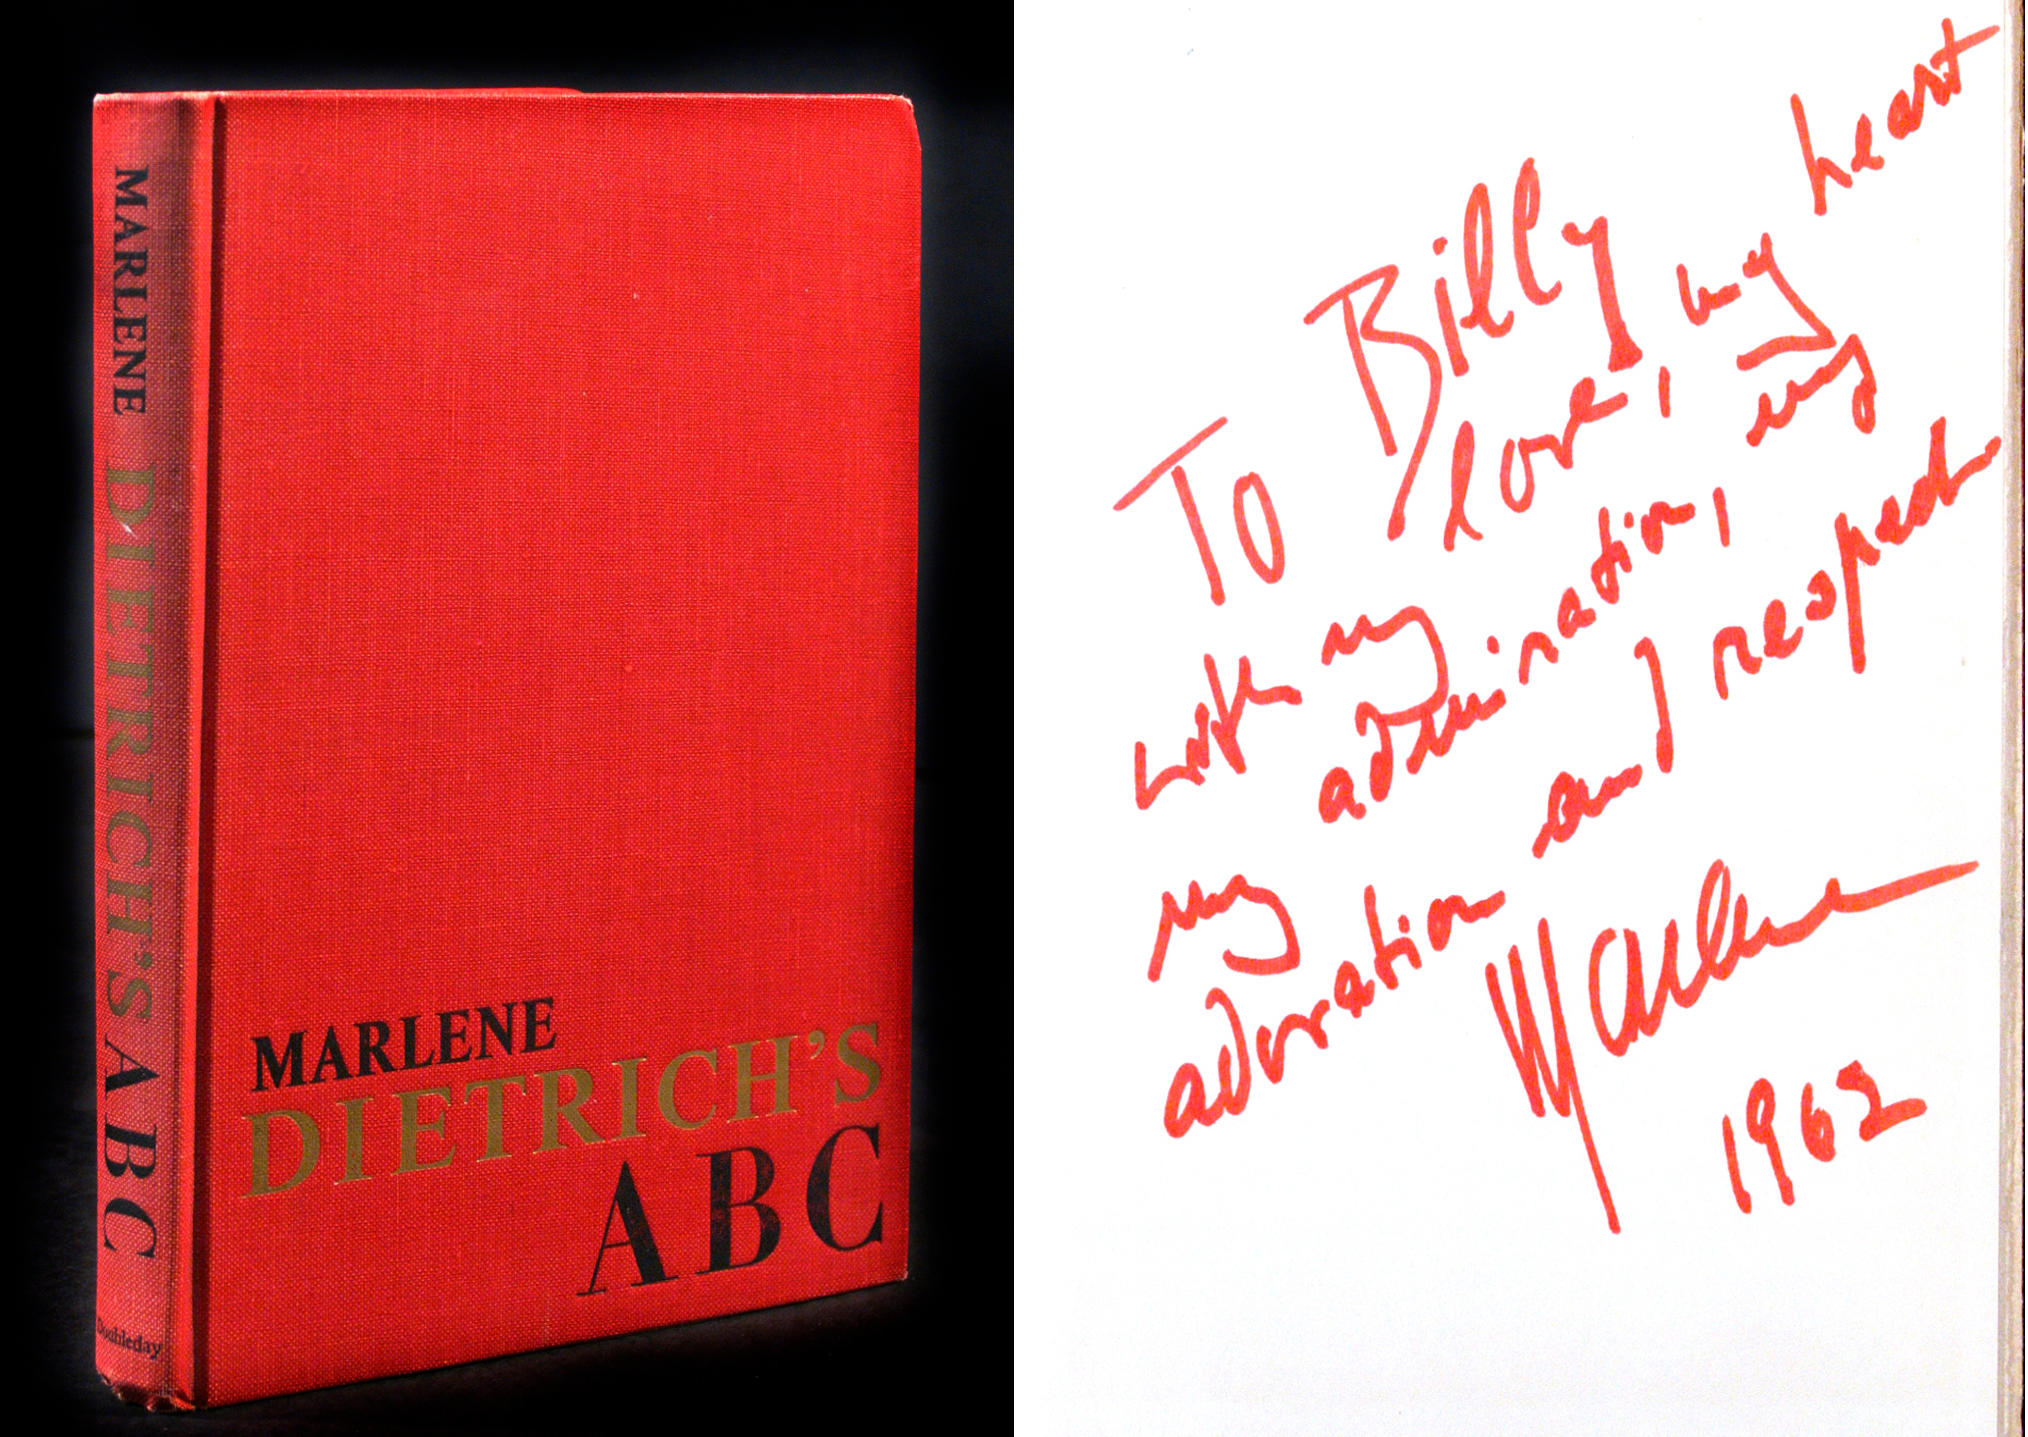 MARLENE DIETRICH'S ABC
Doubleday
MARLENE
DIETRICH'S
ABC
To Billy
with my love, my heart
my admiration, my
adoration and respect
Marlene
1962